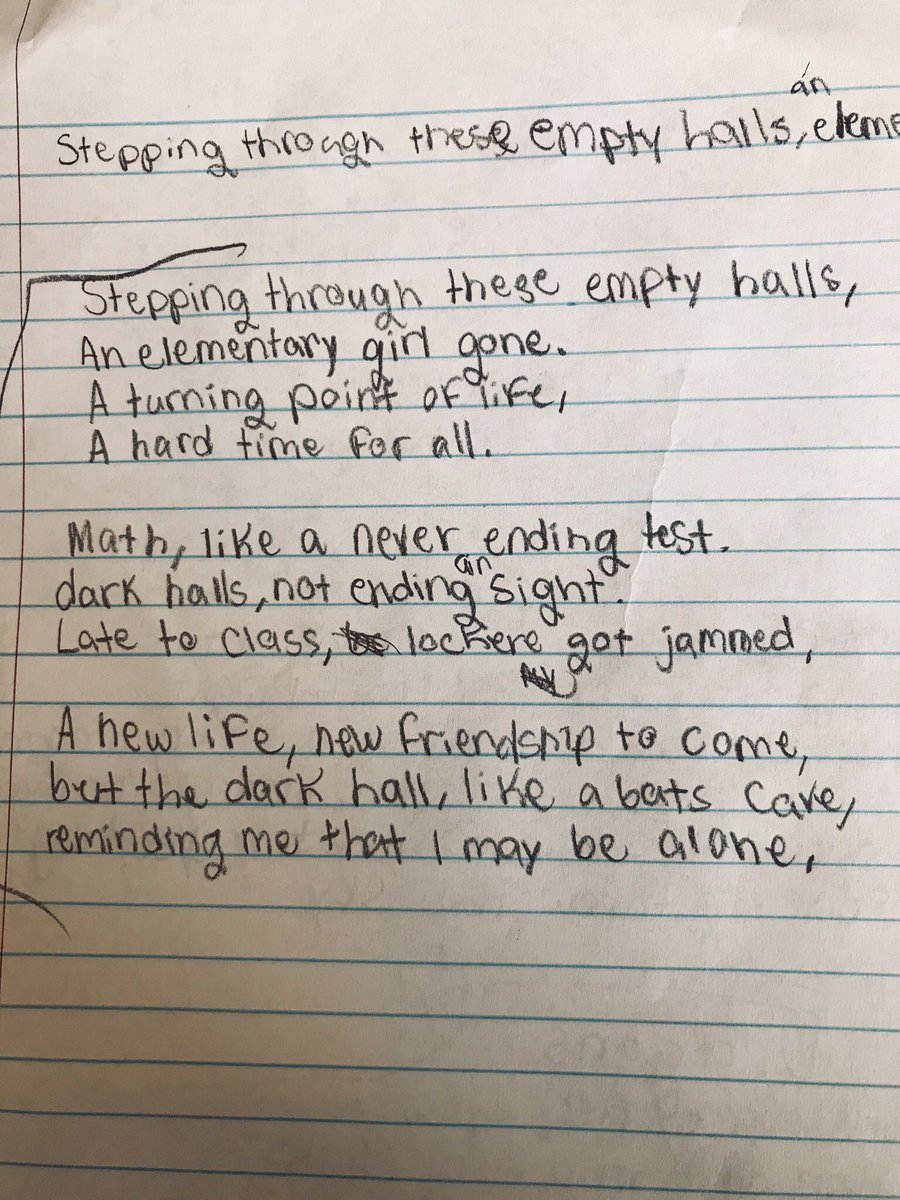 Stepping through these empty halls, an eleme
Stepping through these empty halls,
An elementary girl gone.
A turning point of life,
A hard time for all.
Math, like a never ending test.
dark halls, not ending an sight.
Late to class, lockere got jammed,
A new life, new friendship to come,
but the dark hall, like a bats cave,
reminding me that I may be alone,